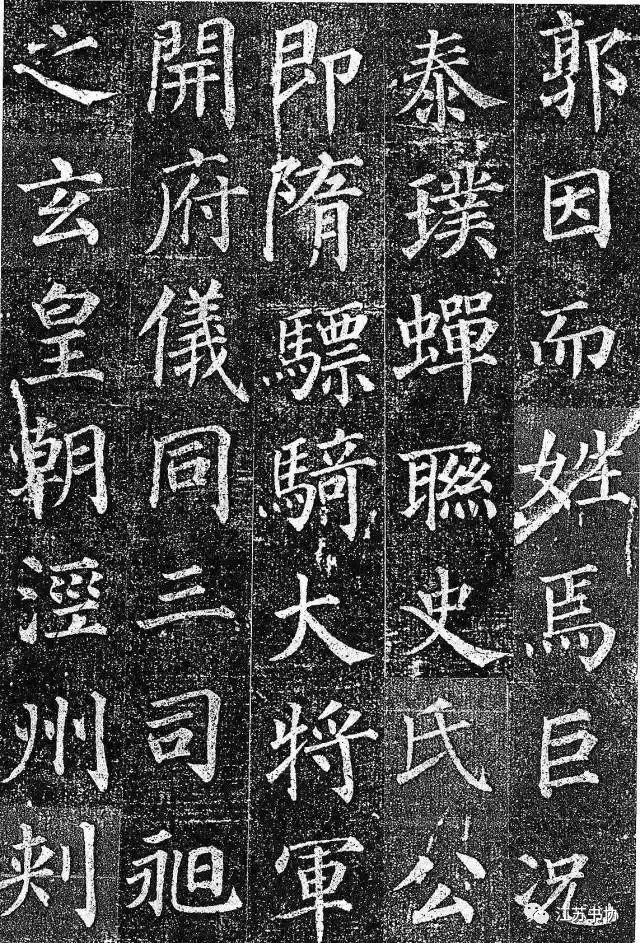 郭因而姓焉巨况
泰璞蟬聯史氏公
即隋驃騎大將軍
開府儀同三司昶
之玄皇朝涇州刺
江苏书协